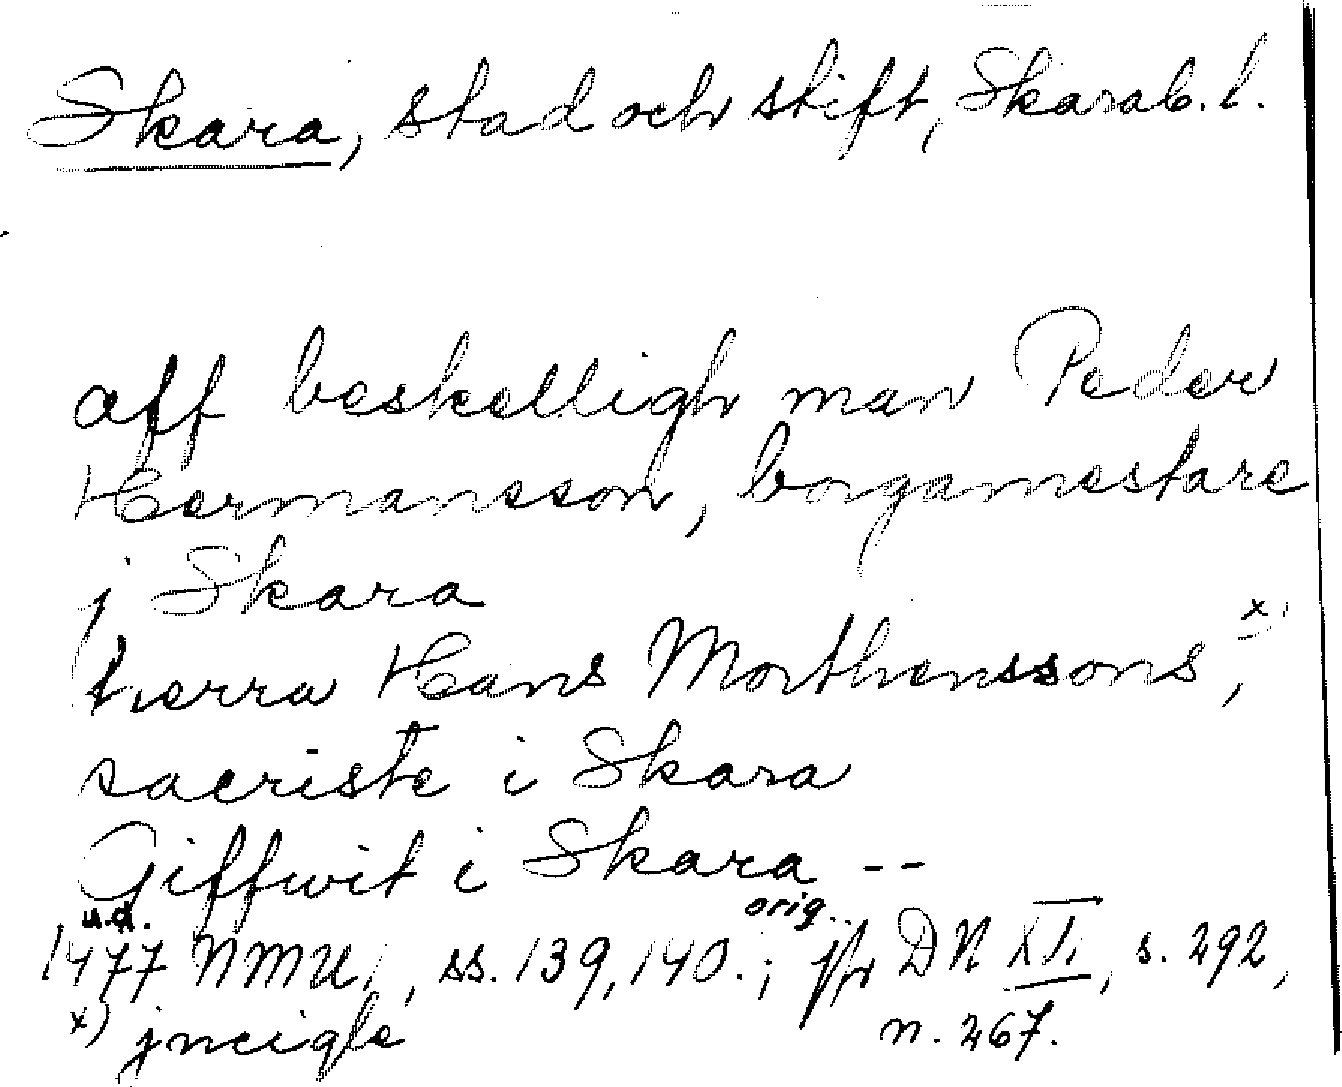 Skara, stad och stift, Skarab. l.
aff beskelligh man Peder
Hermansson, borgamestare
j Skara
herra Hans Morthenssons, x)
sacriste i Skara
Giffwit i Skara --
u.d. orig.
1477 NMU, ss. 139, 140.; jfr DN XVI, s. 292,
x) jncigle n. 267.